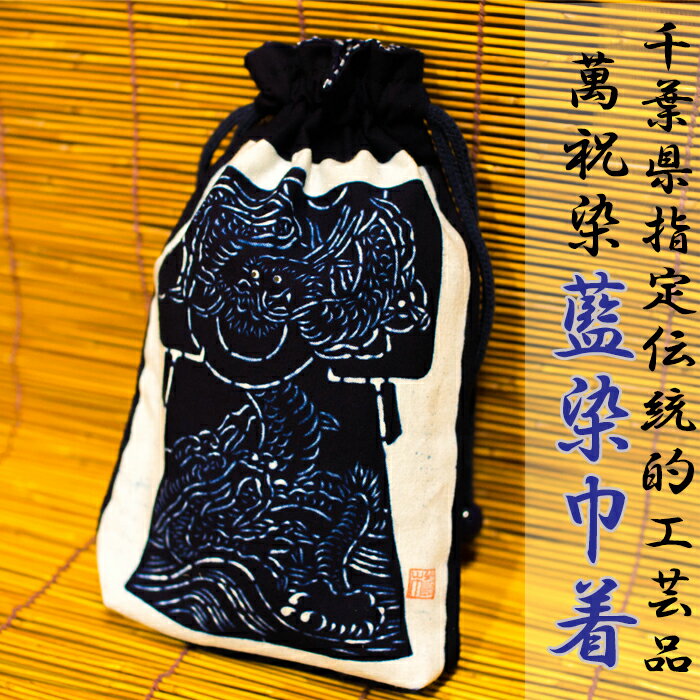 千葉県指定伝統的工芸品
萬祝染
藍染巾着